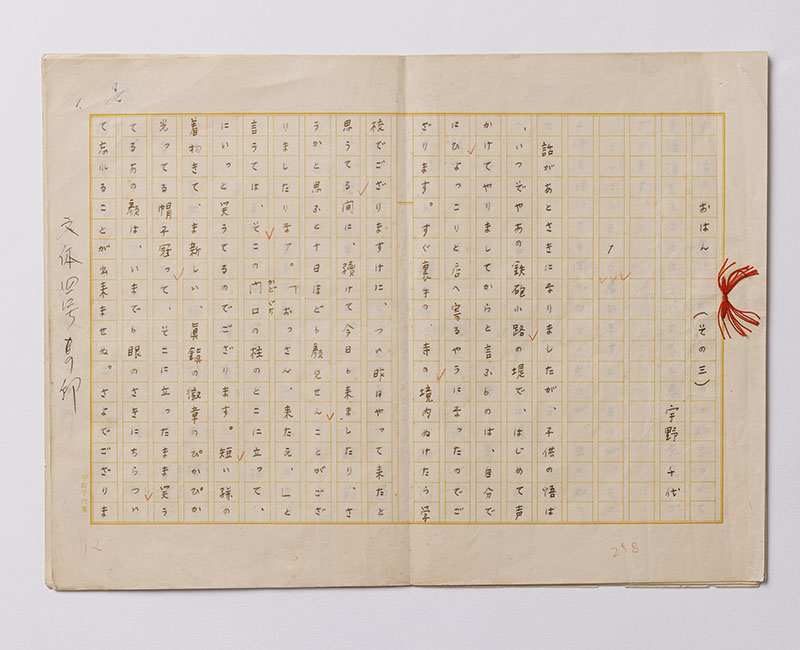 おはん （その三）
宇野千代
1
話があとさきになりましたが、子供の悟は
、いつぞやあの鉄砲小路の堤で、はじめて声
かけてやりましてからと言ふものは、自分で
にひよつこりと店へ寄るやうになつたのでご
ざります。すぐ裏手の、寺の境内ぬけたら学
校でござりますけに、つい昨日やつて来たと
思うてる間に、續けて今日も来ましたり、さ
うかと思ふと十日ほども顔見せんことがござ
りましたります。「おつさん、来たえ、」と
言うては、そこの門口の柱のとこに立つて、
かどぐち
にいつと笑うてるのでござります。短い袴の
着物きて、ま新しい、真鍮の徽章のぴかぴか
光つてる帽子冠つて、そこに立つたまま笑う
てるあの顔は、いまでも眼のさきにちらつい
て忘れることが出来ませぬ。さよでござりま
文体四号
258
12